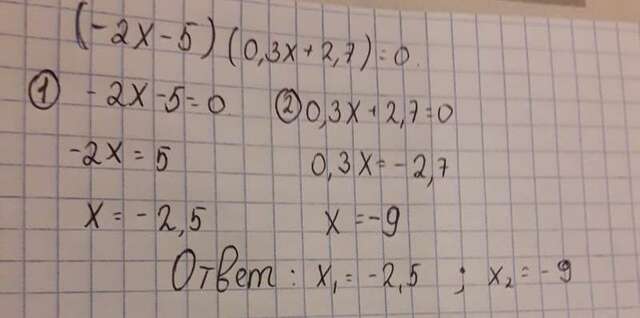 (-2x-5)(0,3x+2,7)=0.
① -2x-5=0 ② 0,3x+2,7=0
-2x=5 0,3x=-2,7
x=-2,5 x=-9
Ответ: x₁=-2,5 ; x₂=-9